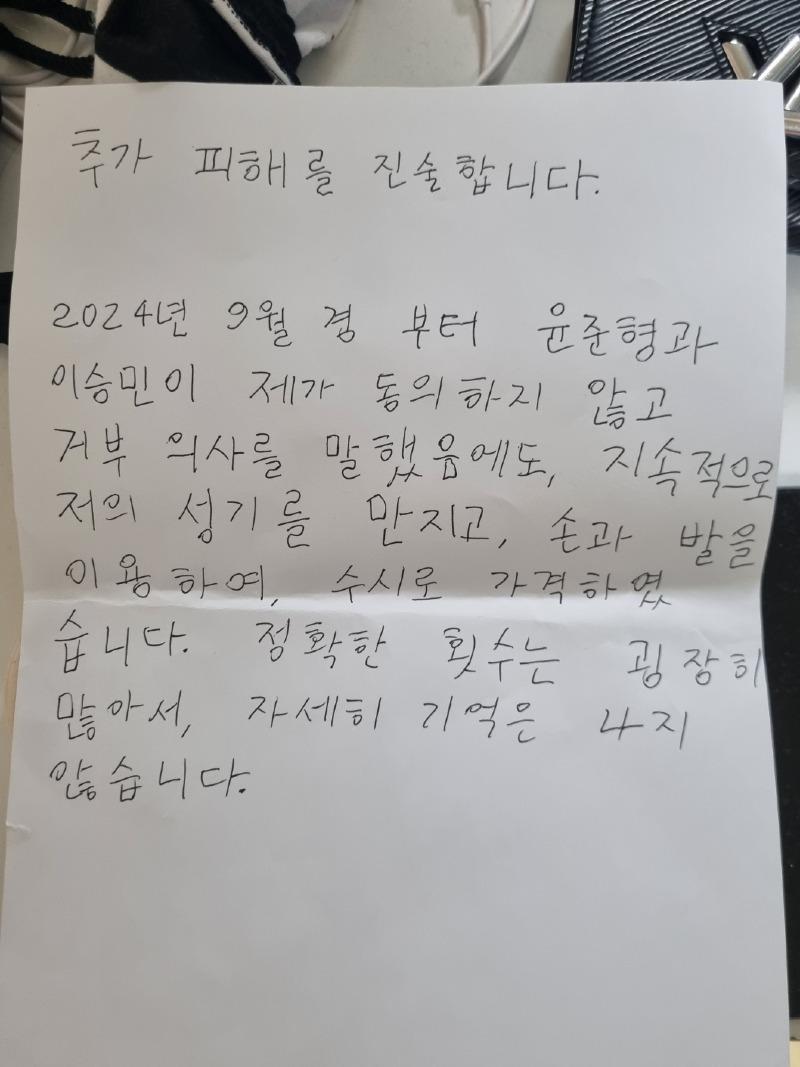 추가 피해를 진술합니다.
2024년 9월 경 부터 윤준형과
이승민이 제가 동의하지 않고
거부 의사를 말했음에도, 지속적으로
저의 성기를 만지고, 손과 발을
이용하여, 수시로 가격하였
습니다. 정확한 횟수는 굉장히
많아서, 자세히 기억은 나지
않습니다.